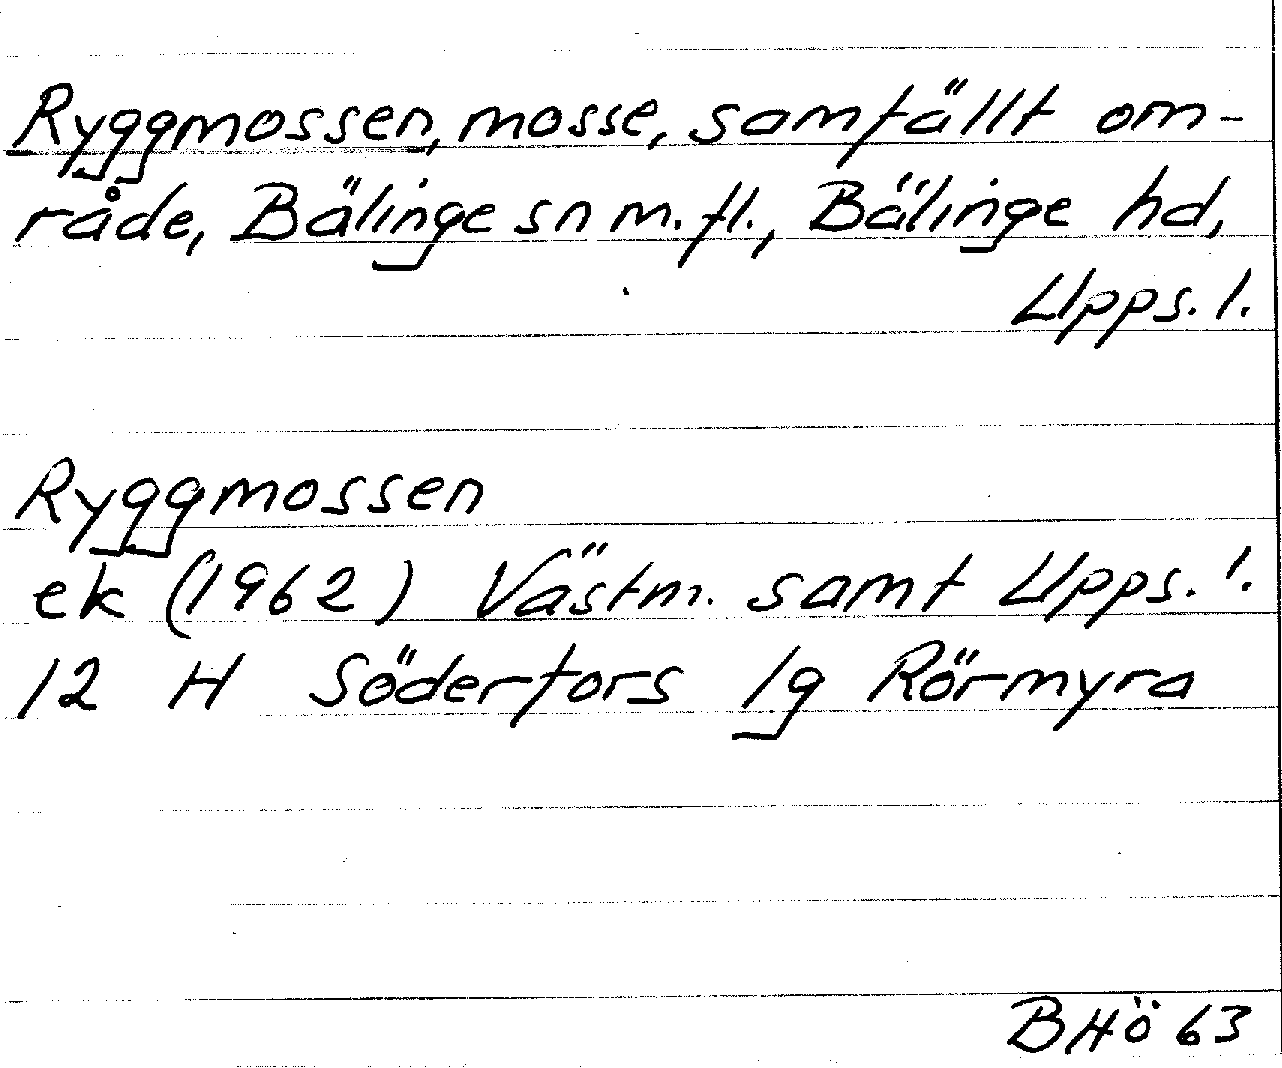 Ryggmossen, mosse, samfällt om-
råde, Bälinge sn m.fl., Bälinge hd,
Upps. l.
Ryggmossen
ek (1962) Västm. samt Upps. l.
12 H Söderfors 1g Rörmyra
BHö 63